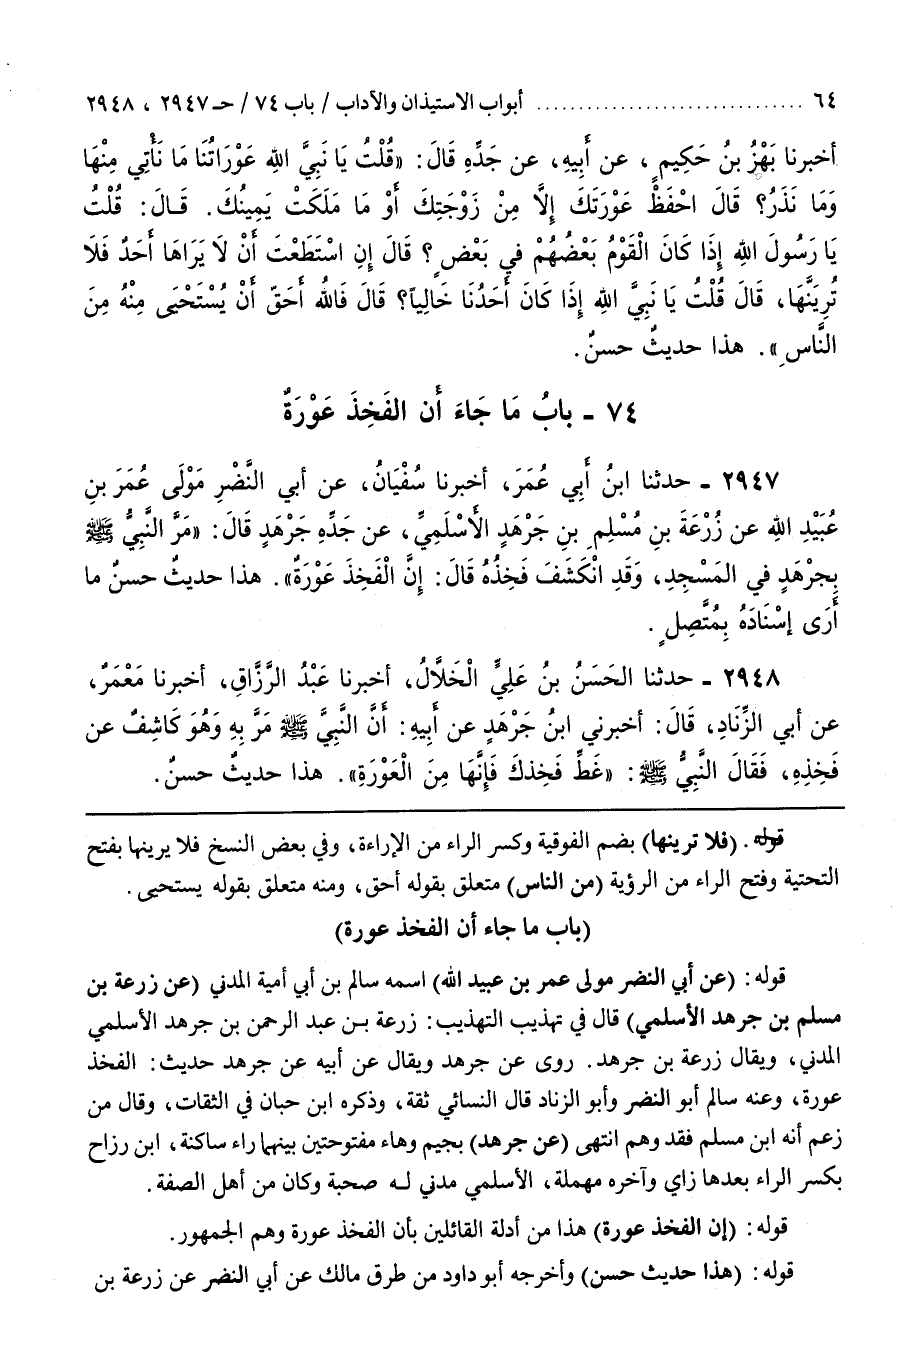 ٦٤ ................................ أبواب الاستيذان والآداب / باب ٧٤ / حـ ٢٩٤٧ ، ٢٩٤٨
أخبرنا بَهْزُ بنُ حَكِيمٍ ، عن أَبِيهِ، عن جَدِّهِ قالَ: «قُلْتُ يَا نَبِيَّ اللهِ عَوْرَاتُنَا مَا نَأْتِي مِنْهَا
وَمَا نَذَرُ؟ قالَ احْفَظْ عَوْرَتَكَ إِلَّا مِنْ زَوْجَتِكَ أَوْ مَا مَلَكَتْ يَمِينُكَ. قَـالَ: قُلْتُ
يَا رَسُولَ اللهِ إِذَا كَانَ الْقَوْمُ بَعْضُهُمْ في بَعْضٍ ؟ قَالَ إِنِ اسْتَطَعْتَ أَنْ لَا يَرَاهَا أَحَدٌ فَلَا
تُرِيَنَّهَا، قَالَ قُلْتُ يَا نَبِيَّ اللهِ إِذَا كَانَ أَحَدُنَا خَالِياً؟ قَالَ فَاللهُ أَحَقّ أَنْ يُسْتَحْيَى مِنْهُ مِنَ
النَّاسِ». هذا حديثٌ حسنٌ.
٧٤ ـ بابُ مَا جَاءَ أَن الفَخِذَ عَوْرَةٌ
٢٩٤٧ ـ حدثنا ابنُ أَبِي عُمَرَ، أخبرنا سُفْيَانُ، عن أبي النَّضْرِ مَوْلَى عُمَرَ بنِ
عُبَيْدِ اللهِ عن زُرْعَةَ بنِ مُسْلِمِ بنِ جَرْهَدٍ الأَسْلَمِيِّ، عن جَدِّهِ جَرْهَدٍ قَالَ: «مَرَّ النَّبِيُّ ﷺ
بِجَرْهَدٍ في المَسْجِدِ، وَقَدِ انْكَشَفَ فَخِذُهُ قَالَ: إِنَّ الْفَخِذَ عَوْرَةٌ». هذا حديثٌ حسنٌ ما
أَرَى إِسْنَادَهُ بِمُتَّصِلٍ .
٢٩٤٨ ـ حدثنا الحَسَنُ بنُ عَلِيٍّ الْخَلَّالُ، أخبرنا عَبْدُ الرَّزَّاقِ، أخبرنا مَعْمَرٌ،
عن أبي الزِّنَادِ، قَالَ: أخبرني ابنُ جَرْهَدٍ عن أَبِيهِ: أَنَّ النَّبِيَّ ﷺ مَرَّ بِهِ وَهُوَ كَاشِفٌ عن
فَخِذِهِ، فَقَالَ النَّبِيُّ ﷺ: «غَطِّ فَخِذَكَ فَإِنَّهَا مِنَ الْعَوْرَةِ». هذا حديثٌ حسنٌ.
قوله. (فلا ترينها) بضم الفوقية وكسر الراء من الإراءة، وفي بعض النسخ فلا يرينها بفتح
التحتية وفتح الراء من الرؤية (من الناس) متعلق بقوله أحق، ومنه متعلق بقوله يستحيى.
(باب ما جاء أن الفخذ عورة)
قوله: (عن أبي النضر مولى عمر بن عبيد الله) اسمه سالم بن أبي أمية المدني (عن زرعة بن
مسلم بن جرهد الأسلمي) قال في تهذيب التهذيب: زرعة بـن عبد الرحمن بن جرهد الأسلمي
المدني، ويقال زرعة بن جرهد. روى عن جرهد ويقال عن أبيه عن جرهد حديث: الفخذ
عورة، وعنه سالم أبو النضر وأبو الزناد قال النسائي ثقة، وذكره ابن حبان في الثقات، وقال من
زعم أنه ابن مسلم فقد وهم انتهى (عن جرهد) بجيم وهاء مفتوحتين بينهما راء ساكنة، ابن رزاح
بكسر الراء بعدها زاي وآخره مهملة، الأسلمي مدني لـه صحبة وكان من أهل الصفة.
قوله: (إن الفخذ عورة) هذا من أدلة القائلين بأن الفخذ عورة وهم الجمهور.
قوله: (هذا حديث حسن) وأخرجه أبو داود من طرق مالك عن أبي النضر عن زرعة بن